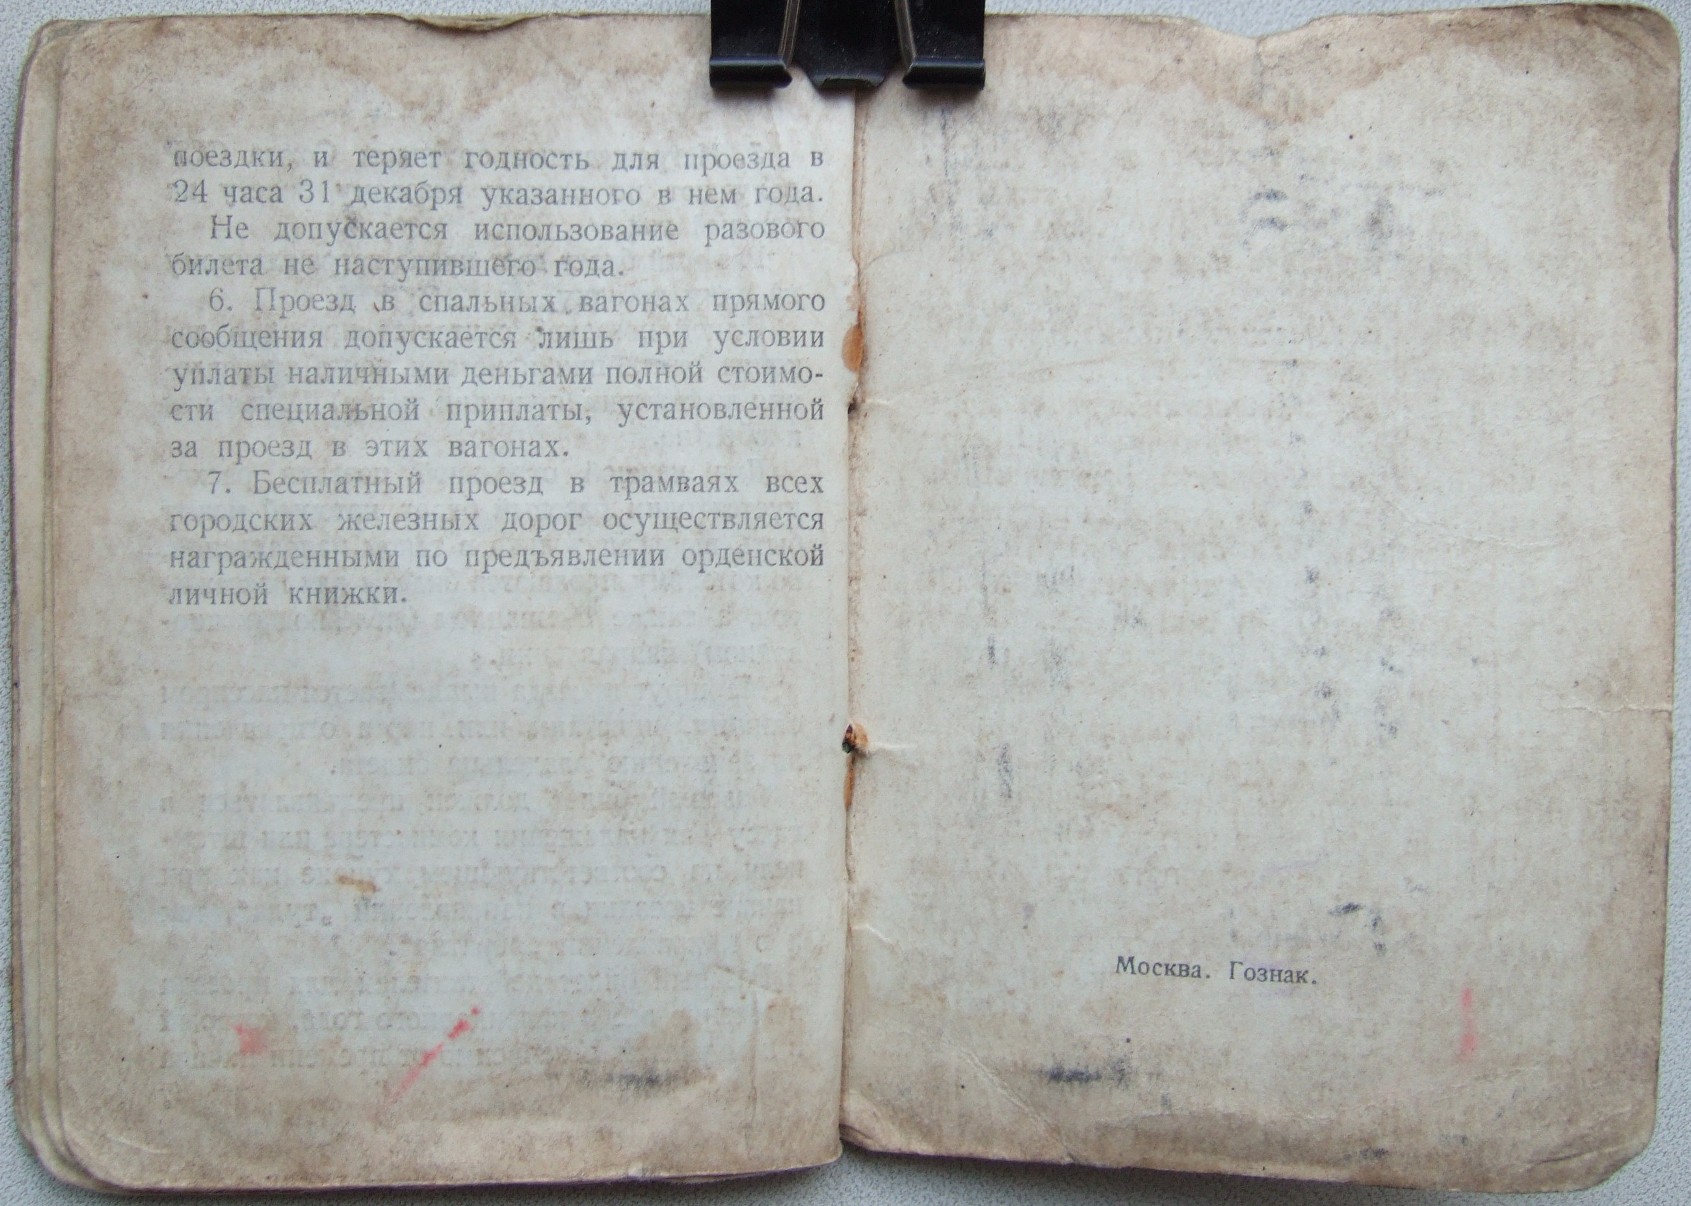 поездки, и теряет годность для проезда в
24 часа 31 декабря указанного в нем года.
Не допускается использование разового
билета не наступившего года.
6. Проезд в спальных вагонах прямого
сообщения допускается лишь при условии
уплаты наличными деньгами полной стоимо-
сти специальной приплаты, установленной
за проезд в этих вагонах.
7. Бесплатный проезд в трамваях всех
городских железных дорог осуществляется
награжденными по предъявлении орденской
личной книжки.
Москва. Гознак.